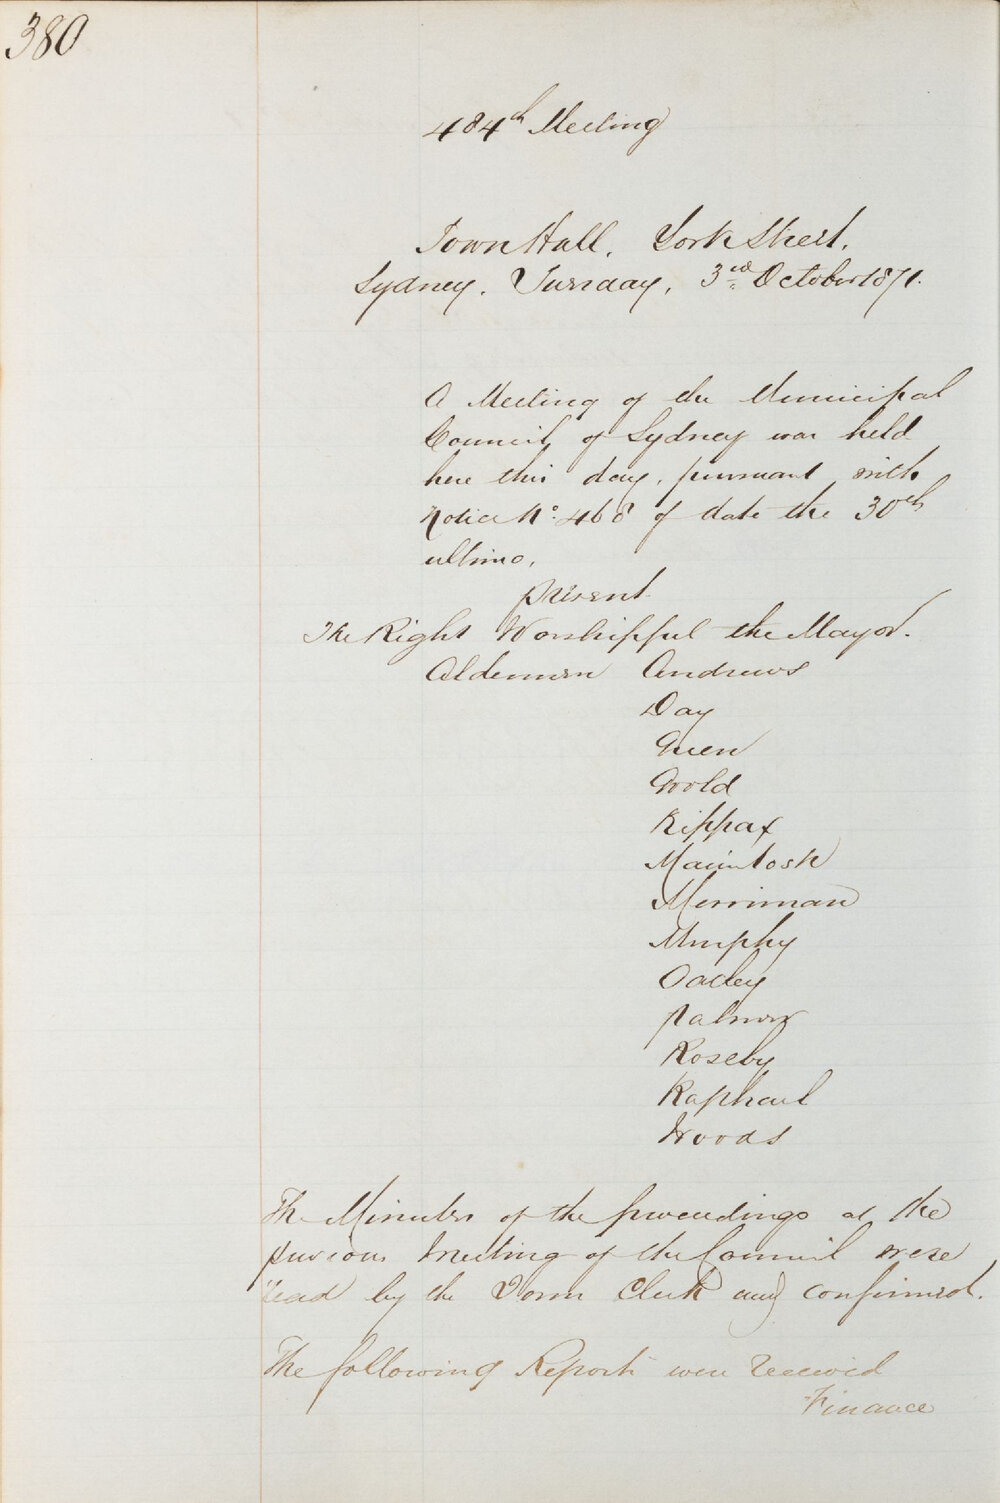 380
484th Meeting
Town Hall. York Street.
Sydney. Tuesday, 3rd October 1871.
A Meeting of the Municipal
Council, of Sydney was held
here this day, pursuant with
Notice No. 468 of date the 30th
ultimo.
present
The Right Worshipful the Mayor.
Aldermen Andrews
Day
Green
Goold
Kippax
Macintosh
Merriman
Murphy
Oatley
Palmer
Roseby
Raphael
Woods
The Minutes of the proceedings at the
previous Meeting of the Council were
read by the Town Clerk and confirmed.
The following Reports were received
Finance